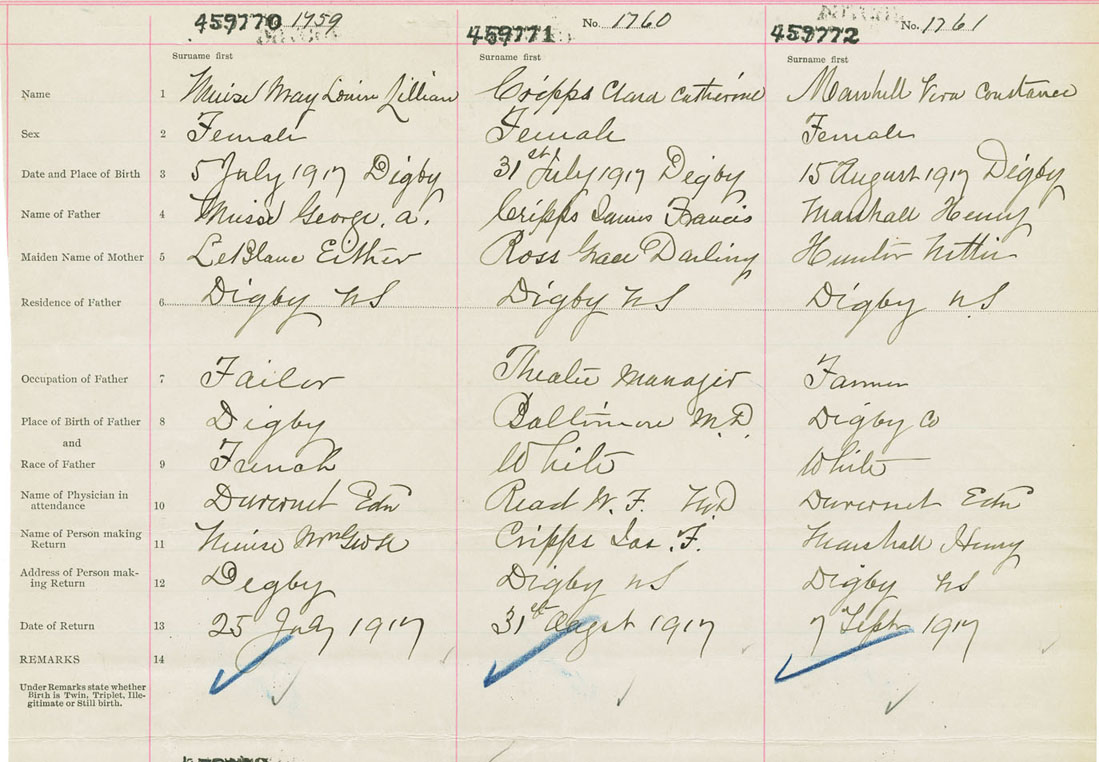 459770 1759
459771 No. 1760
459772 No. 1761
Surname first Surname first Surname first
Name 1 Muise May Louise Lillian Cripps Clara Catherine Marshall Vera Constance
Sex 2 Female Female Female
Date and Place of Birth 3 5 July 1917 Digby 31st July 1917 Digby 15 August 1917 Digby
Name of Father 4 Muise George. a. Cripps James Francis Marshall Henry
Maiden Name of Mother 5 LeBlanc Esther Ross Grace Darling Hunter Nettie
Residence of Father 6 Digby NS Digby NS Digby NS
Occupation of Father 7 Tailor Theatre Manager Farmer
Place of Birth of Father 8 Digby Baltimore M.D. Digby Co
and
Race of Father 9 French White White
Name of Physician in
attendance 10 Duvernet Edn Read W. F. M.D Duvernet Edn
Name of Person making
Return 11 Muise Mrs Cripps Jas. F. Marshall Henry
Address of Person mak-
ing Return 12 Digby Digby NS Digby NS
Date of Return 13 25 July 1917 31st August 1917 7 Septr 1917
REMARKS 14
Under Remarks state whether
Birth is Twin, Triplet, Ille-
gitimate or Still birth.